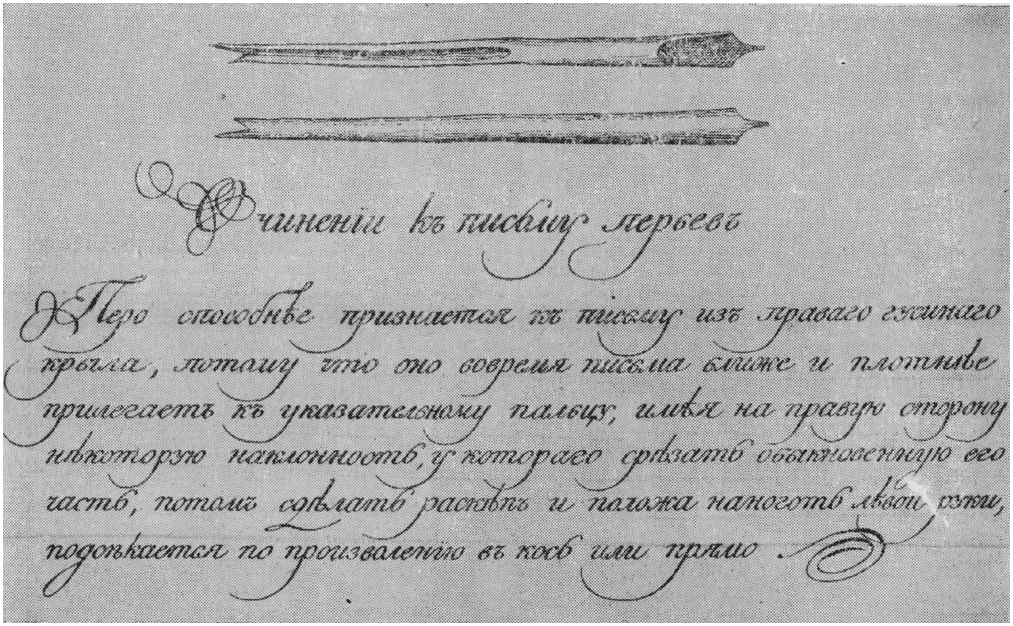 О чиненіи къ письму перьевъ
Перо способнѣе признается къ письму изъ праваго гусинаго
крыла, потому что оно вовремя письма ближе и плотнѣе
прилегаетъ къ указательному пальцу, имѣя на правую сторону
нѣкоторую наклонность, у котораго срѣзать обыкновенную его
часть, потомъ сдѣлать раскѣпъ и положа наноготь лѣвой руки,
подсѣкается по произволенію въ кось или прямо